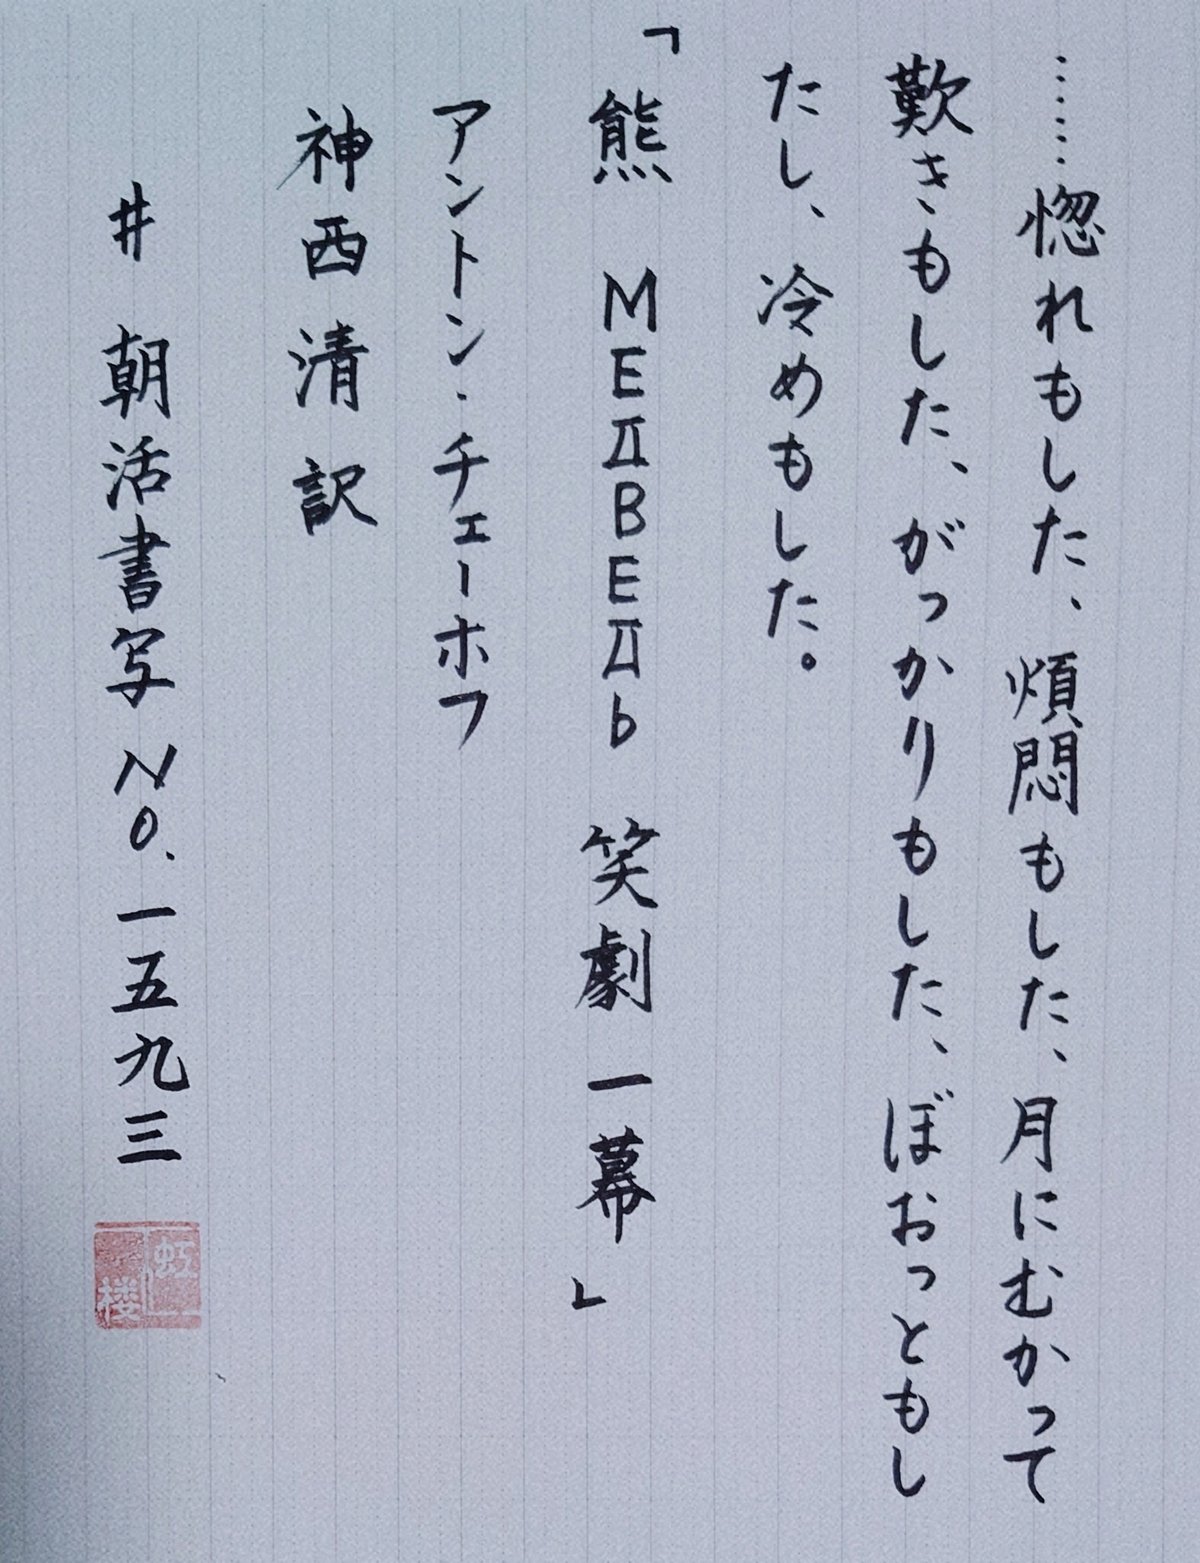 ……惚れもした、煩悶もした、月にむかって
歎きもした、がっかりもした、ぼおっともし
たし、冷めもした。
「熊 МЕДВЕДЬ 笑劇一幕」
アントン・チェーホフ
神西清訳
# 朝活書写 NO.一五九三
虹
楼